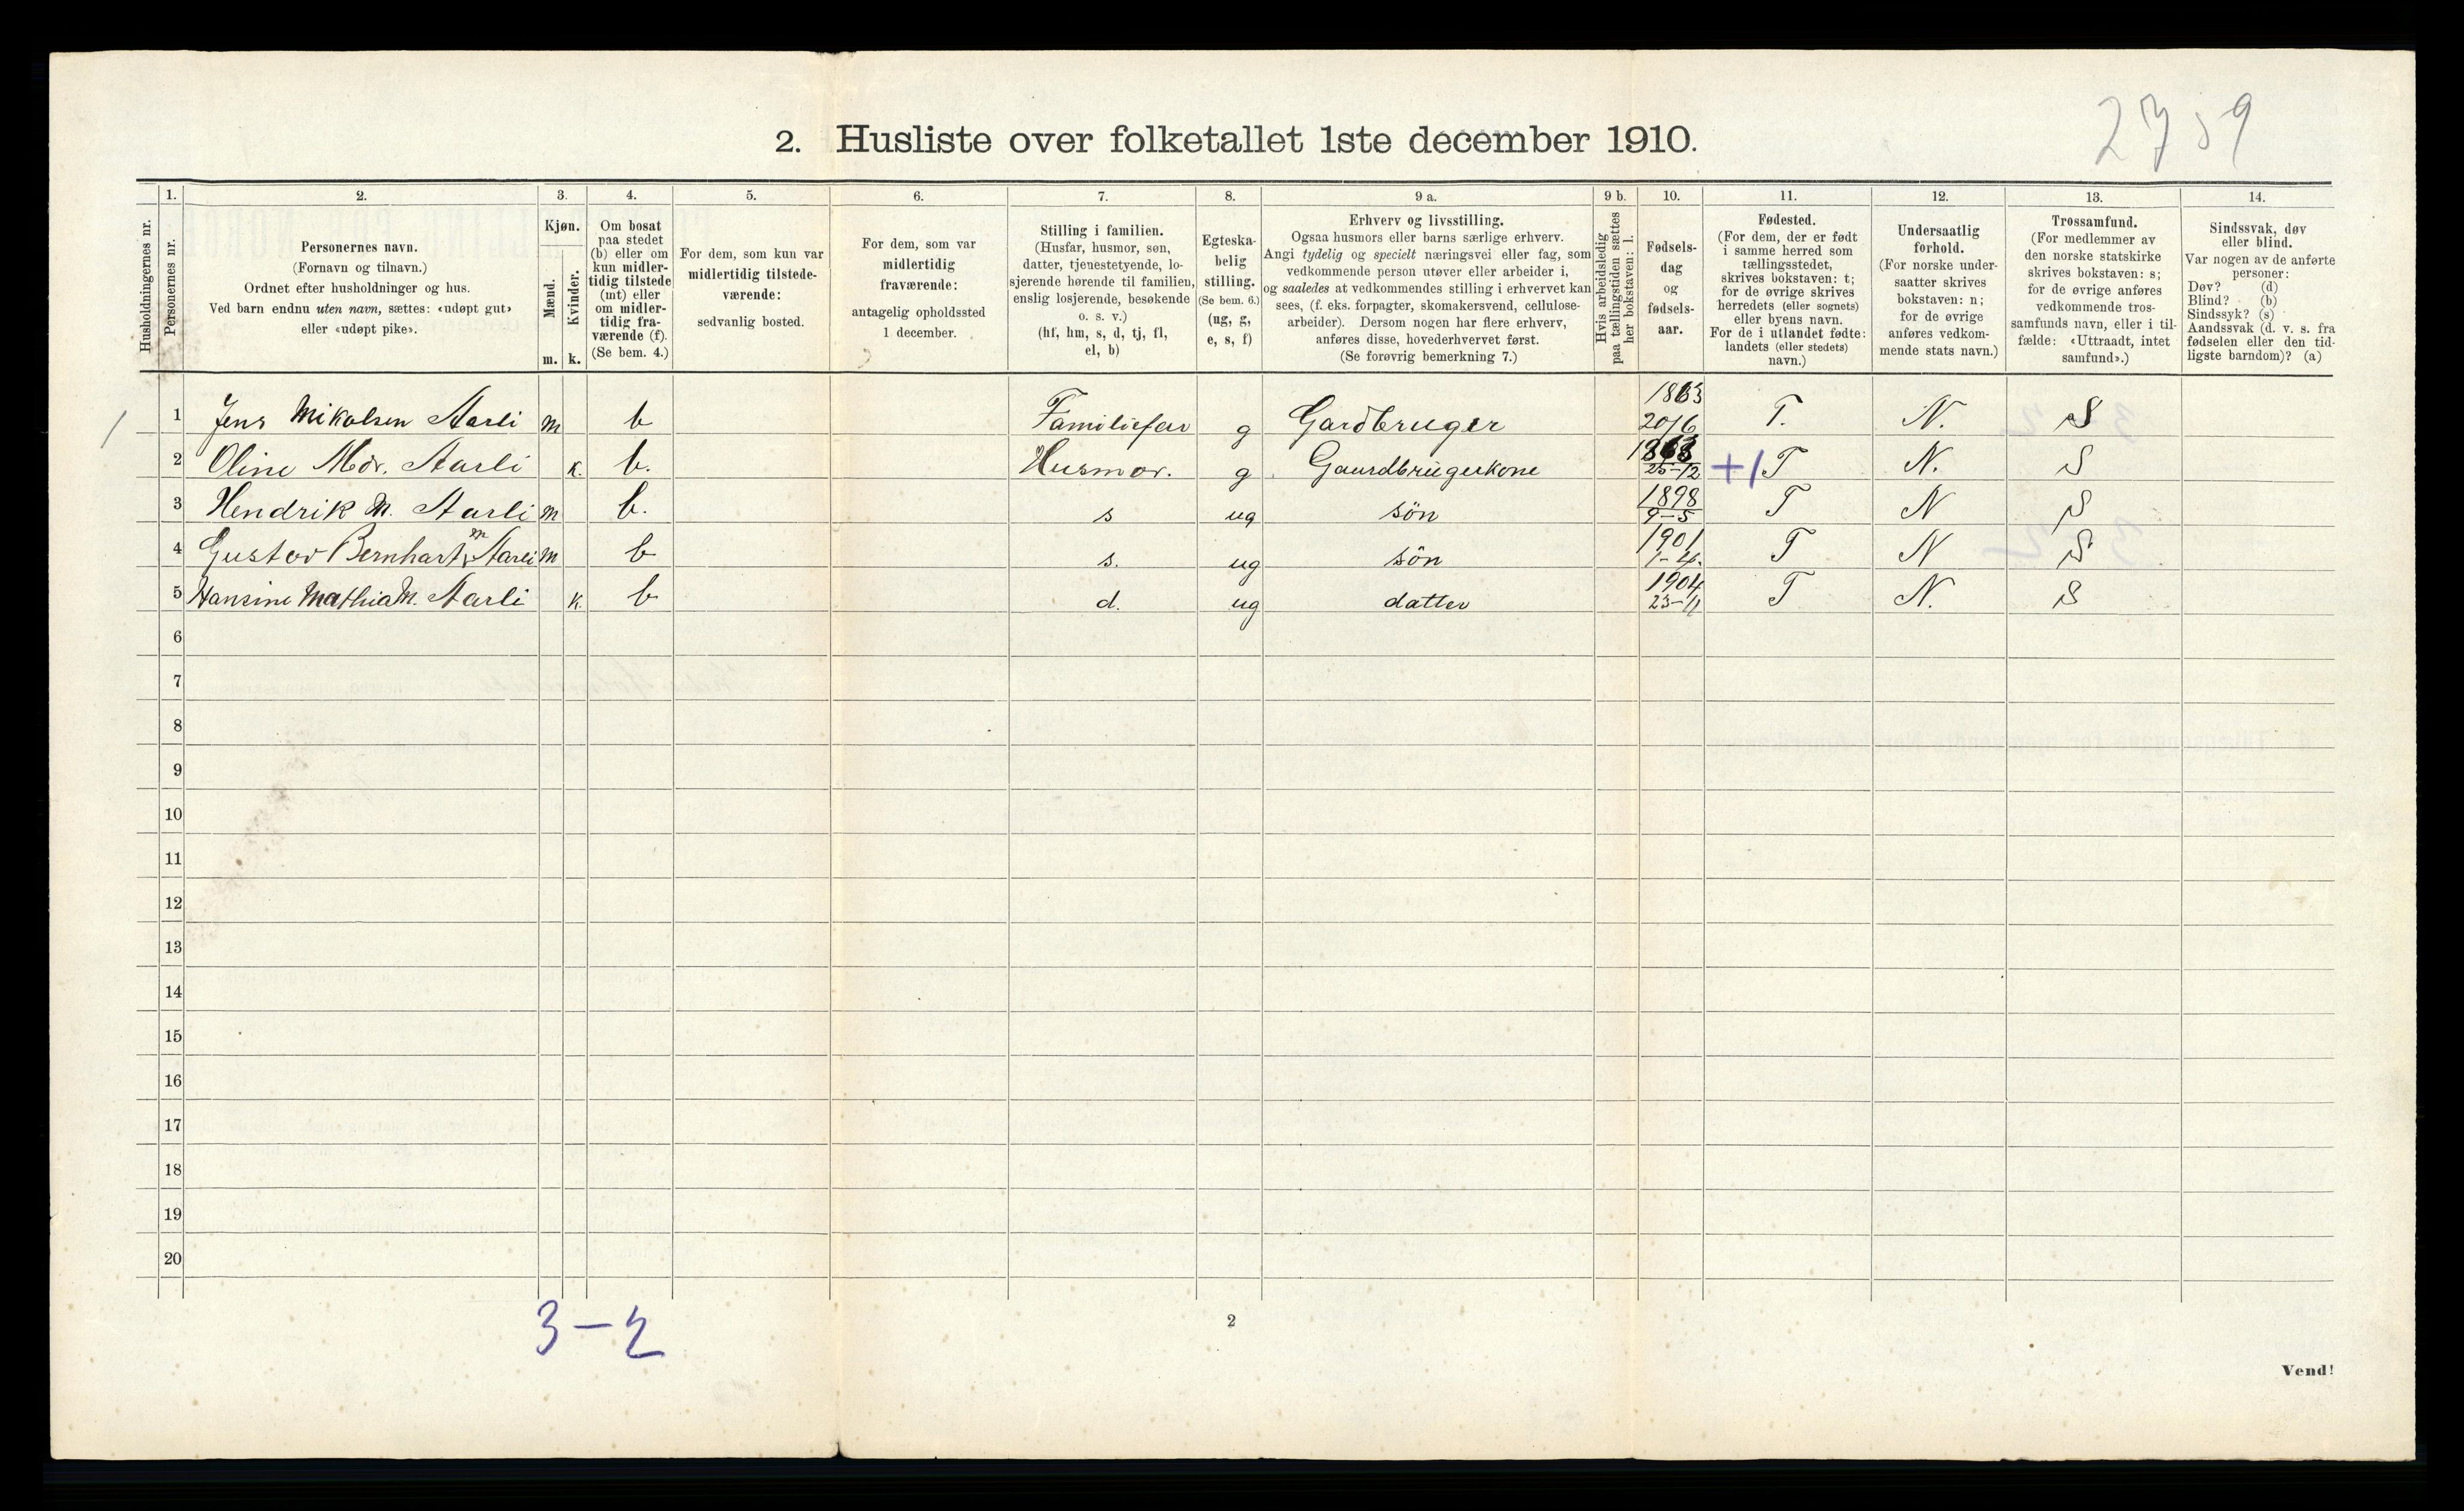 2759
2. Husliste over folketallet 1ste december 1910.
Husholdningernes nr.
1.
Personernes nr.
2.
Personernes navn.
(Fornavn og tilnavn.)
Ordnet efter husholdninger og hus.
Ved barn endnu uten navn, sættes: «udøpt gut»
eller «udøpt pike».
3.
Kjøn.
Mænd.
Kvinder.
m. k.
4.
Om bosat
paa stedet
(b) eller om
kun midler-
tidig tilstede
(mt) eller
om midler-
tidig fra-
værende (f).
(Se bem. 4.)
5.
For dem, som kun var
midlertidig tilstede-
værende:
sedvanlig bosted.
6.
For dem, som var
midlertidig
fraværende:
antagelig opholdssted
1 december.
7.
Stilling i familien.
(Husfar, husmor, søn,
datter, tjenestetyende, lo-
sjerende hørende til familien,
enslig losjerende, besøkende
o. s. v.)
(hf, hm, s, d, tj, fl,
el, b)
8.
Egteska-
belig
stilling.
(Se bem. 6.)
(ug, g,
e, s, f)
9 a.
Erhverv og livsstilling.
Ogsaa husmors eller barns særlige erhverv.
Angi tydelig og specielt næringsvei eller fag, som
vedkommende person utøver eller arbeider i,
og saaledes at vedkommendes stilling i erhvervet kan
sees, (f. eks. forpagter, skomakersvend, cellulose-
arbeider). Dersom nogen har flere erhverv,
anføres disse, hovederhvervet først.
(Se forøvrig bemerkning 7.)
9 b.
Hvis arbeidsledig
paa tællingstiden sættes
her bokstaven: l.
10.
Fødsels-
dag
og
fødsels-
aar.
11.
Fødested.
(For dem, der er født
i samme herred som
tællingsstedet,
skrives bokstaven: t;
for de øvrige skrives
herredets (eller sognets)
eller byens navn.
For de i utlandet fødte:
landets (eller stedets)
navn.)
12.
Undersaatlig
forhold.
(For norske under-
saatter skrives
bokstaven: n;
for de øvrige
anføres vedkom-
mende stats navn.)
13.
Trossamfund.
(For medlemmer av
den norske statskirke
skrives bokstaven: s;
for de øvrige anføres
vedkommende tros-
samfunds navn, eller i til-
fælde: «Uttraadt, intet
samfund».)
14.
Sindssvak, døv
eller blind.
Var nogen av de anførte
personer:
Døv? (d)
Blind? (b)
Sindssyk? (s)
Aandssvak (d. v. s. fra
fødselen eller den tid-
ligste barndom)? (a)
1 Jens Mikalsen Aarli m b Familiefar g Gardbruger 1863 20/6 T. N. S
2 Oline Mdr. Aarli k. b. Husmor. g Gaurdbrugerkone 1868 25-12 +1 T N. S
3 Hendrik M. Aarli m b. s ug sön 1898 9-5 T N S
4 Gustav Bernhart M Aarli m b s. ug sön 1901 1-4. T N S
5 Hansine Mathia M. Aarli k. b d. ug datter 1904 23-11 T N. S
6
7
8
9
10
11
12
13
14
15
16
17
18
19
20
3-2
2
Vend!